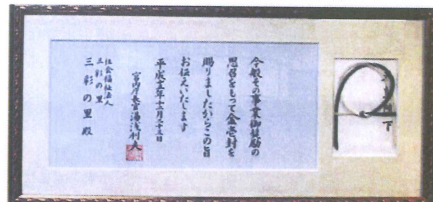 今般その事業御奨励の
思召をもって金壱封を
賜りましたからこの旨
お伝えいたします
平成十五年十二月二十三日
宮内庁長官湯浅利夫
社会福祉法人
三彩の里
三彩の里 殿
下